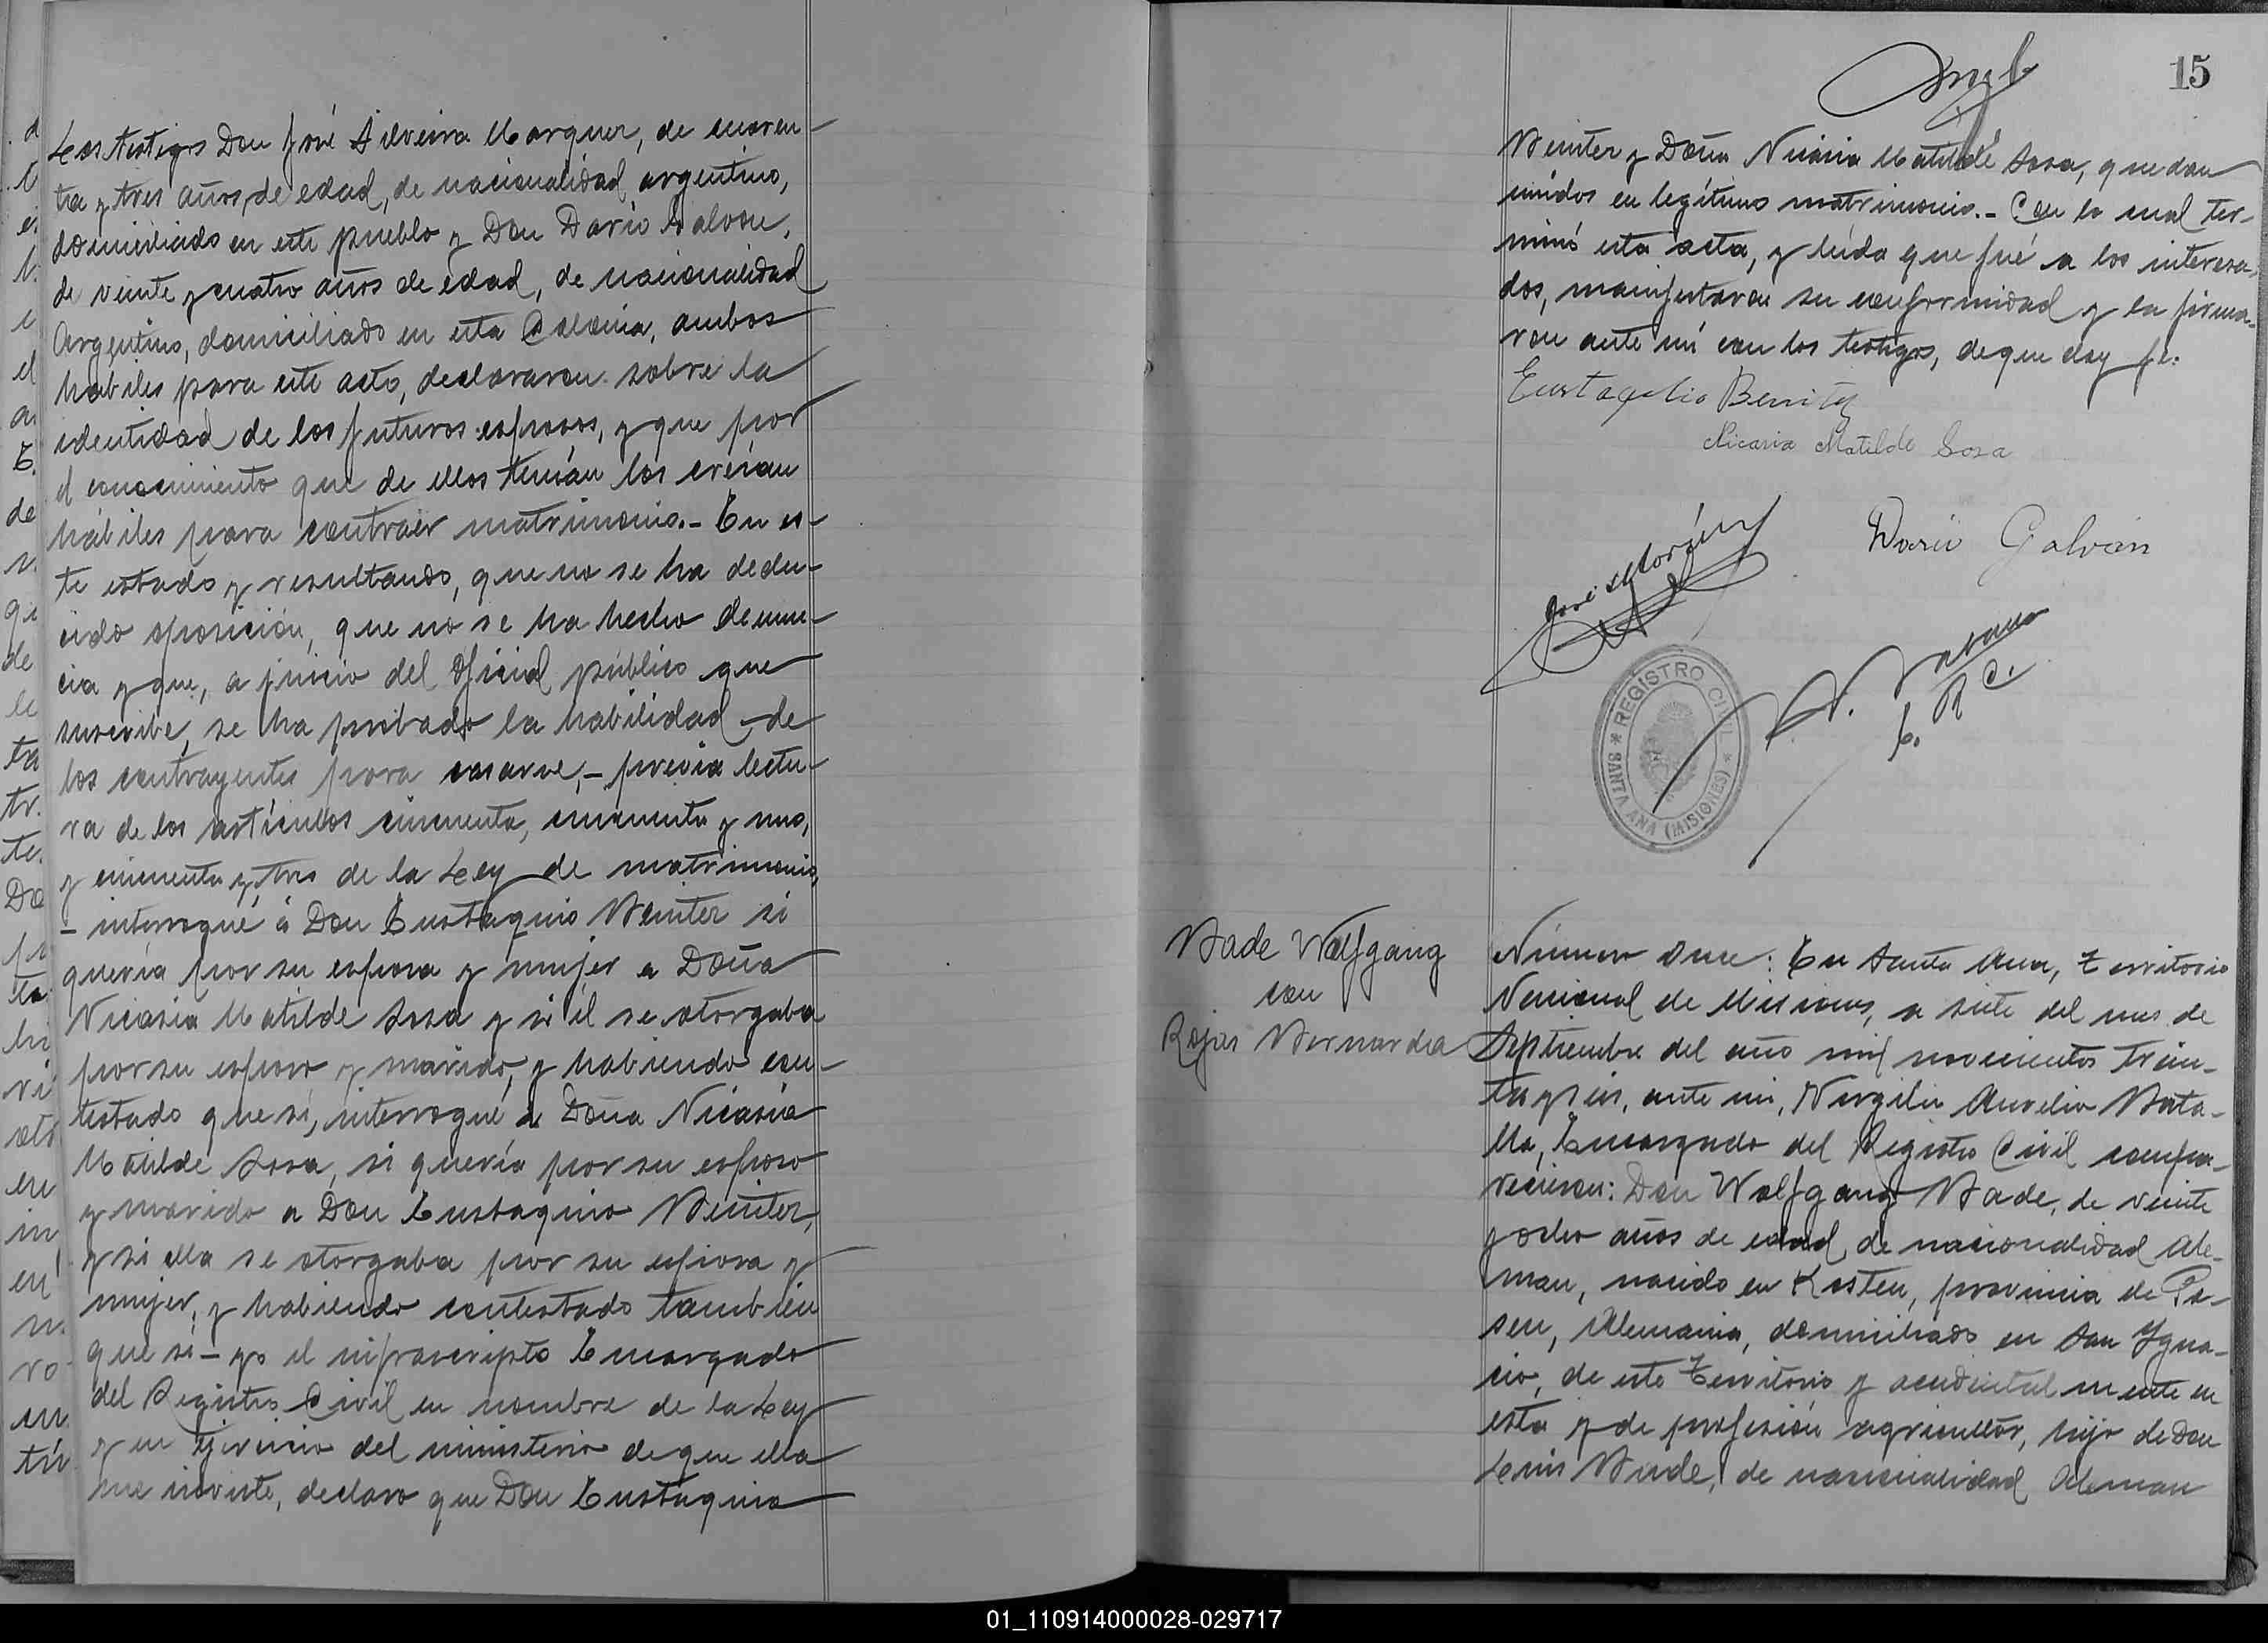 Los testigos Don José Silveira Marquez, de cuaren-
ta y tres años de edad, de nacionalidad argentino,
domiciliado en este pueblo y Don Darío Galván,
de veinte y cuatro años de edad, de nacionalidad
Argentino, domiciliado en esta Colonia, ambos
hábiles para este acto, declararon sobre la
identidad de los futuros esposos, y que por
el conocimiento que de ellos tenían los creían
hábiles para contraer matrimonio.- En es-
te estado y resultando, que no se ha dedu-
cido oposición, que no se ha hecho denun-
cia y que, a juicio del Oficial público que
suscribe, se ha probado la habilidad de
los contrayentes para casarse,- previa lectu-
ra de los artículos cincuenta, cincuenta y uno,
y cincuenta y tres de la Ley de matrimonio,
- interrogué á Don Eustaquio Beniter si
quería por su esposa y mujer a Doña
Nicasia Matilde Sosa y si él se otorgaba
por su esposo y marido, y habiendo con-
testado que sí, interrogué a Doña Nicasia
Matilde Sosa, si quería por su esposo
y marido a Don Eustaquio Beniter,
y si ella se otorgaba por su esposa y
mujer, y habiendo contestado también
que sí - yo el infrascripto Encargado
del Registro Civil en nombre de la Ley
y en ejercicio del ministerio de que ella
me inviste, declaro que Don Eustaquio
15
Beniter y Doña Nicasia Matilde Sosa, quedan
unidos en legítimo matrimonio.- Con lo cual ter-
minó esta acta, y leída que fué a los interesa-
dos, manifestaron su conformidad y la firma-
ron ante mí con los testigos, de que doy fé:
Eustaquio Benitez
Nicasia Matilde Sosa
José
Darío Galván
E. R. C.
* REGISTRO CIVIL *
SANTA ANA (MISIONES)
Bade Wolfgang
con
Rojas Bernarda
Número once: En Santa Ana, Territorio
Nacional de Misiones, a siete del mes de
Septiembre del año mil novecientos trein-
ta y seis, ante mi, Virgilio Aurelio Bata-
lla, Encargado del Registro Civil compa-
recieron: Don Wolfgang Bade, de veinte
y ocho años de edad, de nacionalidad Ale-
man, nacido en Kosten, provincia de Po-
sen, Alemania, domiciliado en San Ygna-
cio, de este Territorio y accidentalmente en
esta y de profesión agricultor, hijo de Don
Luis Bade, de nacionalidad Aleman
01_110914000028-029717